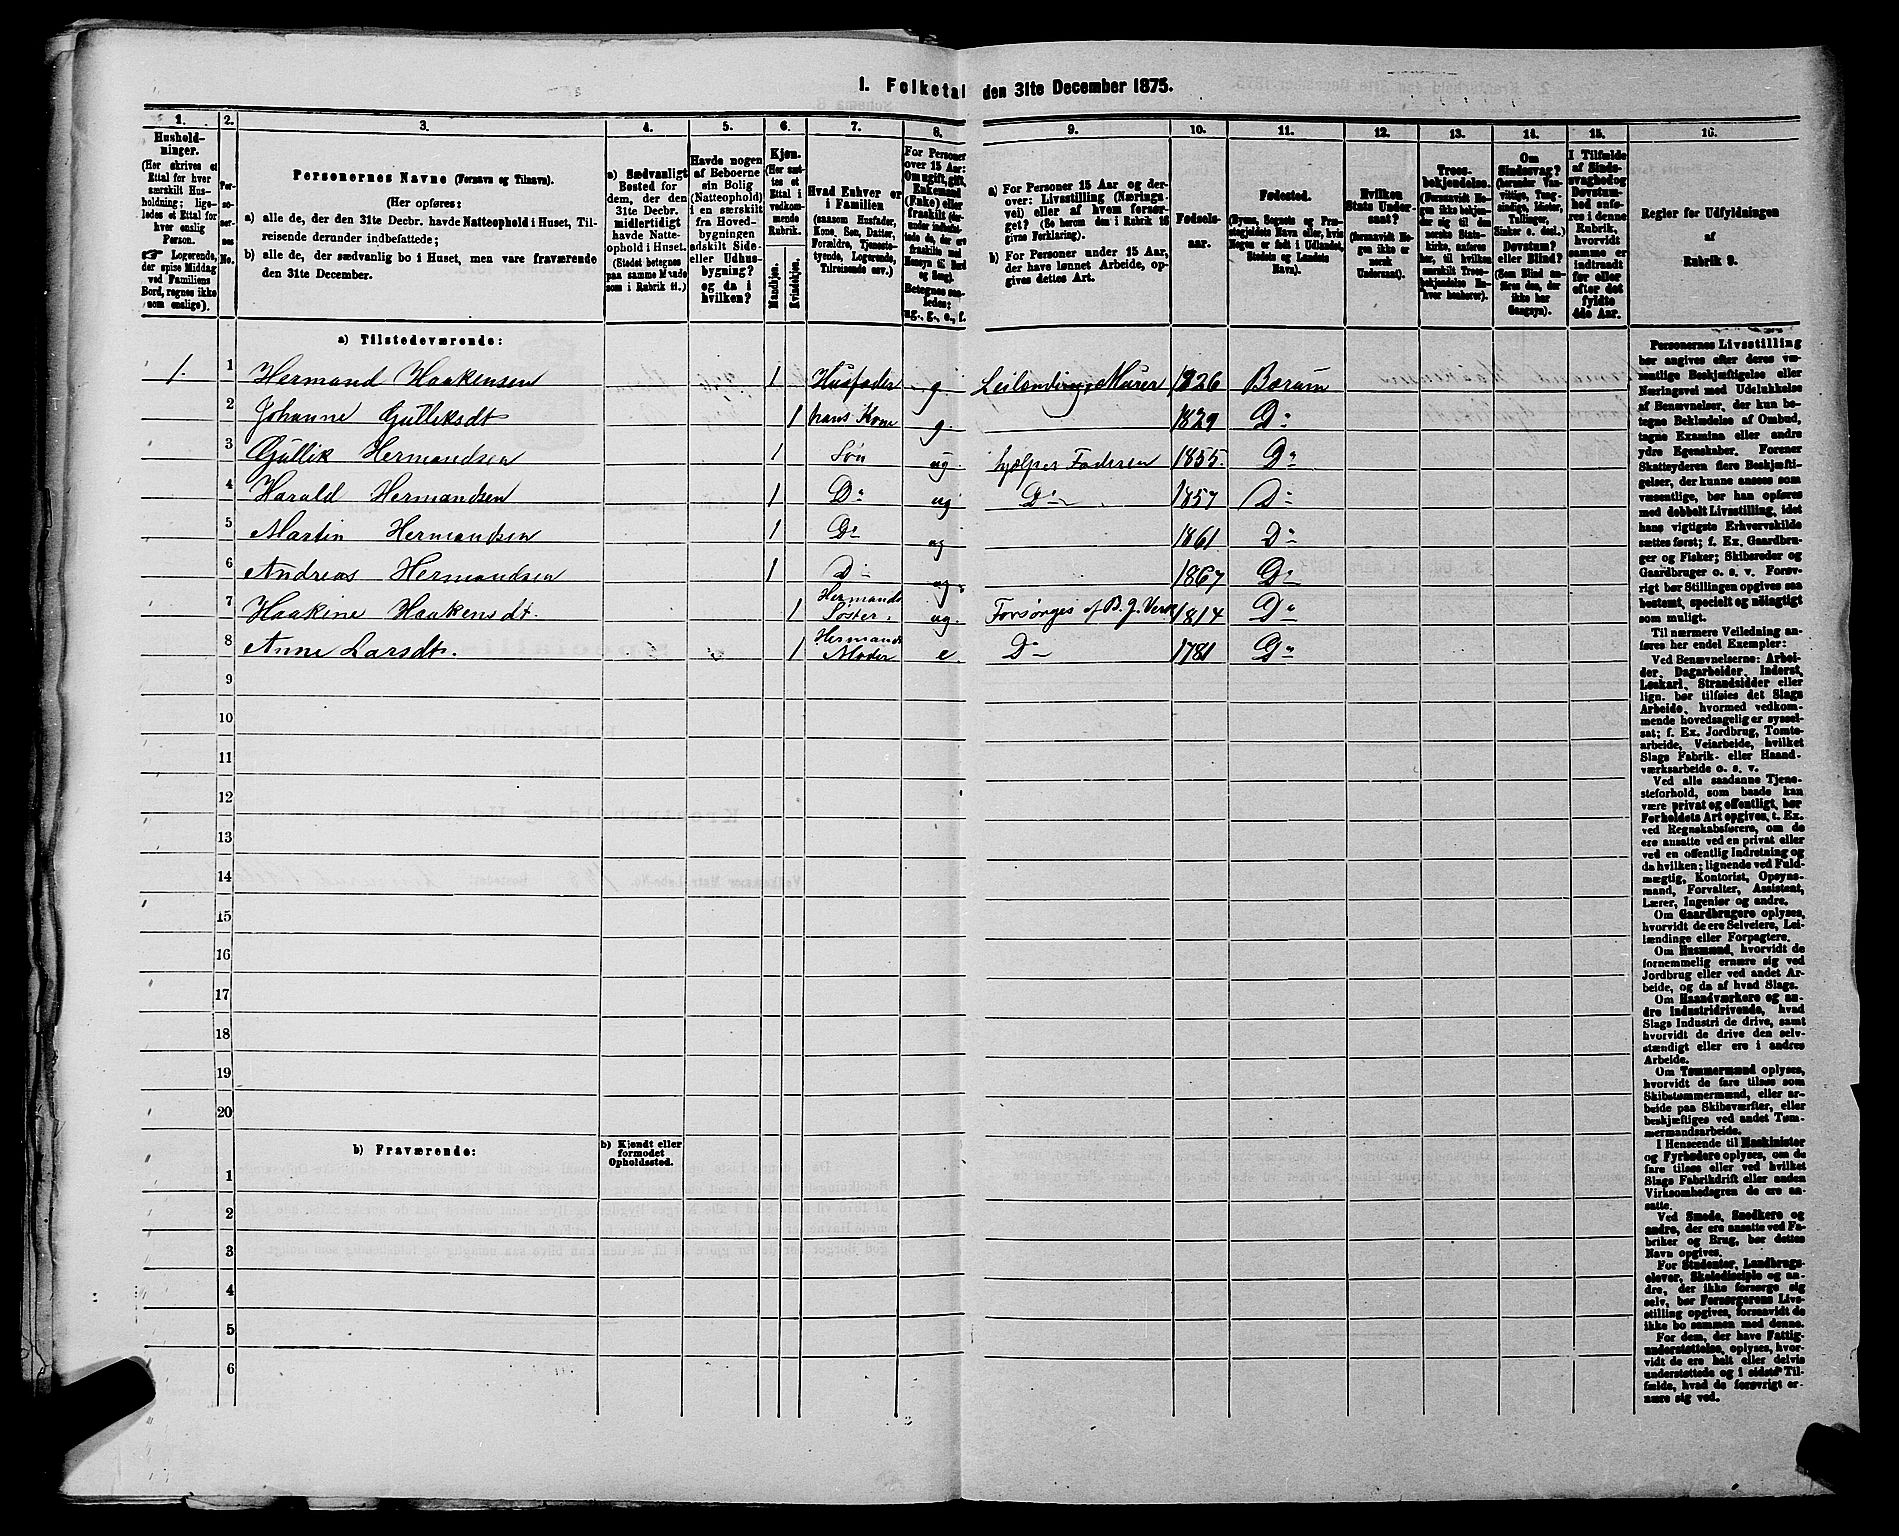 1. Folketal den 31te December 1875.
1.
Hushold-
ninger.
(Her skrives et
Ettal for hver
særskilt Hus-
holdning; lige-
ledes et Ettal for
hver enslig
Person.
☛ Logerende,
der spise Middag
ved Familiens
Bord, regnes ikke
som enslige).
2.
Per-
so-
ner-
nes
No.
3.
Personernes Navne (Fornavn og Tilnavn).
(Her opføres:
a) alle de, der den 31te Decbr. havde Natteophold i Huset, Til-
reisende derunder indbefattede;
b) alle de, der sædvanlig bo i Huset, men vare fraværende
den 31te December.
4.
a) Sædvanligt
Bosted for
dem, der den
31te Decbr.
midlertidigt
havde Natte-
ophold i Huset.
(Stedet betegnes
paa samme Maade
som i Rubrik 11.)
5.
Havde nogen
af Beboerne
sin Bolig
(Natteophold)
i en særskilt
fra Hoved-
bygningen
adskilt Side-
eller Udhus-
bygning?
og da i
hvilken?
6.
Kjøn.
(Her sæt-
tes et
Ettal i
vedkom-
mende
Rubrik.)
Mandkjøn.
Kvindekjøn.
7.
Hvad Enhver er
i Familien
(saasom Husfader,
Kone, Søn, Datter,
Forældre, Tjeneste-
tyende, Logerende,
Tilreisende osv.)
8.
For Personer
over 15 Aar:
Om ugift, gift,
Enkemand
(Enke) eller
fraskilt
Betegnes saa-
ledes:
ug., g., e., f.
9.
a) For Personer 15 Aar og der-
over: Livsstilling (Nærings-
vei) eller af hvem forsør-
get? (Se herom den i Rubrik 16
givne Forklaring).
b) For Personer under 15 Aar,
der have lønnet Arbeide, op-
gives dettes Art.
10.
Fødsels-
aar.
11.
Fødested.
(Byens, Sognets og Præ-
stegjeldets Navn eller, hvis
Nogen er født i Udlandet,
Stedets og Landets
Navn).
12.
Hvilken
Stats Under-
saat?
(forsaavidt No-
gen ikke er
norsk
Undersaat).
13.
Troes-
bekjendelse.
(Forsaavidt No-
gen ikke bekjen-
der sig til den
norske Stats-
kirke, anføres
her, til hvilken
særskilt Troes-
bekjendelse En-
hver henhører).
14.
Om
Sindssvag?
(herunder Van-
vittige, Tung-
sindige, Idioter,
Tullinger,
Sinker o. desl.)
Døvstum?
eller Blind?
(Som Blind an-
føres den, der
ikke har
Gangsyn).
15.
I Tilfælde
af Sinds-
svaghed og
Døvstum-
hed anfø-
res i denne
Rubrik,
hvorvidt
samme er
indtraadt
før eller
efter det
fyldte
4de Aar.
16.
Regler for Udfyldningen
af
Rubrik 9.
a) Tilstedeværende:
1. 1 Hermand Haakensen 1 Husfader g. Leilending, Murer 1826 Bærum
2 Johanne Gulliksdt 1 hans Kone g. 1829 Do
3 Gullik Hermandsen 1 Søn ug. hjælper Faderen 1855. Do
4 Harald Hermandsen 1 Do ug Do 1857 Do
5 Martin Hermandsen 1 Do ug 1861 Do
6 Andreas Hermandsen 1 Do ug. 1867 Do
7 Haakine Haakensdt. 1 Hermands Søster. ug. Forsørges af B. J. Verk 1814 Do
8 Anne Larsdt. 1 Hermands Moder e. Do 1781 Do
9
10
11
12
13
14
15
16
17
18
19
20
b) Fraværende:
b) Kjendt eller
formodet
Opholdssted.
1
2
3
4
5
6
Personernes Livsstilling
bør angives efter deres væ-
sentlige Beskjæftigelse eller
Næringsvei med Udelukkelse
af Benævnelser, der kun be-
tegne Beklædelse af Ombud,
tagne Examina eller andre
ydre Egenskaber. Forener
Skatteyderen flere Beskjæfti-
gelser, der kunne ansees som
væsentlige, bør han opføres
med dobbelt Livsstilling, idet
hans vigtigste Erhvervskilde
sættes først; f. Ex. Gaardbru-
ger og Fisker; Skibsreder og
Gaardbruger o. s. v. Forøv-
rigt bør Stillingen opgives saa
bestemt, specielt og nøiagtigt
som muligt.
Til nærmere Veiledning an-
føres her endel Exempler:
Ved Benævnelserne: Arbei-
der, Dagarbeider, Inderst,
Løskarl, Strandsidder eller
lign. bør tilføies det Slags
Arbeide, hvormed vedkom-
mende hovedsagelig er syssel-
sat; f. Ex. Jordbrug, Tomte-
arbeide, Veiarbeide, hvilket
Slags Fabrik- eller Haand-
værksarbeide o. s. v.
Ved alle saadanne Tjene-
steforhold, som baade kan
være privat og offentligt, bør
Forholdets Art opgives, t. Ex.
ved Regnskabsførere, om de
ere ansatte ved en privat eller
ved en offentlig Indretning og
da hvilken; lignende ved Fuld-
mægtig, Kontorist, Opsyns-
mand, Forvalter, Assistent,
Lærer, Ingeniør og andre.
Om Gaardbrugere oplyses,
hvorvidt de ere Selveiere, Lei-
lændinge eller Forpagtere.
Om Husmænd, hvorvidt de
fornemmelig ernære sig ved
Jordbrug eller ved andet Ar-
beide, og da af hvad Slags.
Om Haandværkere og an-
dre Industridrivende, hvad
Slags Industri de drive, samt
hvorvidt de drive den selv-
stændigt eller ere i andres
Arbeide.
Om Tømmermænd oplyses,
hvorvidt de fare tilsøs som
Skibstømmermænd, eller ar-
beide paa Skibsværfter, eller
beskjæftiges ved andet Tøm-
mermandsarbeide.
I Henseende til Maskinister
og Fyrbødere oplyses, om de
fare tilsøs eller ved hvilket
Slags Fabrikdrift eller anden
Virksomhedsgren de ere an-
satte.
Ved Smede, Snedkere og
andre, der ere ansatte ved Fa-
briker og Brug, bør dettes
Navn opgives.
For Studenter, Landbrugs-
elever, Skoledisciple og an-
dre, der ikke forsørge sig
selv, bør Forsørgerens Livs-
stilling opgives, forsaavidt de
ikke bo sammen med denne.
For dem, der have Fattig-
understøttelse, oplyses, hvor-
vidt de ere helt eller delvis
understøttede og i sidste Til-
fælde, hvad de forøvrigt er-
nære sig ved.